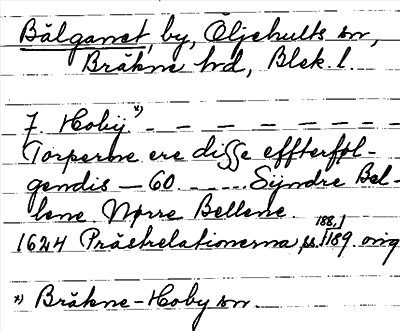 Bälganet, by, Öljehults sn,
Bräkne hd, Blek. l.
7. Hobÿ.x) - - - - - - -
Torperne ere disse effterføl-
gendis - 60. - - - - - Sÿndre Bel-
lene. Nørre Bellene.
188,1
1624 Prästrelationerna, ss. 189. orig
x) Bräkne-Hoby sn.